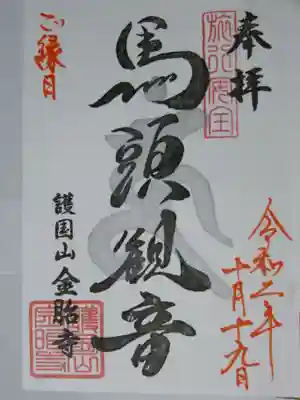 奉拝
馬頭観音
ご縁日
護国山 金胎寺
令和二年
十月十九日